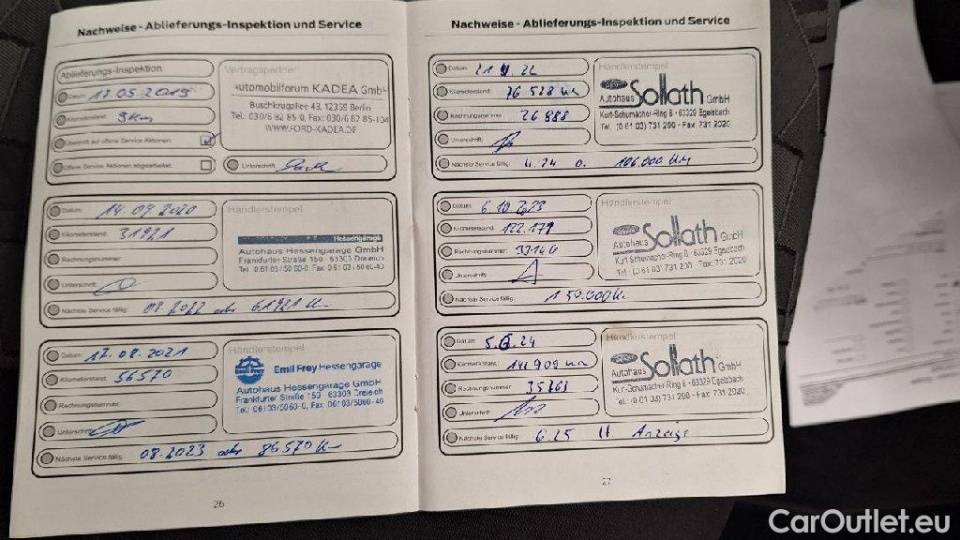 Nachweise - Ablieferungs-Inspektion und Service
Ablieferungs-Inspektion
Datum: 17.05.2019
Kilometerstand: 3km
Überprüft auf offene Service Aktionen:
Offene Service Aktionen abgearbeitet:
Vertragspartner
Automobilforum KADEA GmbH
Buschkrugallee 43, 12359 Berlin
Tel.: 030/6 82 85 0, Fax: 030/6 82 85-104
WWW.FORD-KADEA.DE
Unterschrift
Datum: 14.07.2020
Kilometerstand: 31921
Rechnungsnummer:
Unterschrift:
Nächste Service fällig: 08.2022 oder 61921 K
Händlerstempel
Hessengarage
Autohaus Hessengarage GmbH
Frankfurter Straße 150 - 63303 Dreieich
Tel.: 0 61 03 / 50 60-0, Fax: 0 61 03 / 50 60-40
Datum: 17.08.2021
Kilometerstand: 56570
Rechnungsnummer:
Unterschrift:
Nächste Service fällig: 08.2023 oder 86570 K
Händlerstempel
Emil Frey Hessengarage
Autohaus Hessengarage GmbH
Frankfurter Straße 150 · 63303 Dreieich
Tel.: 06103/5060-0, Fax: 06103/5060-40
26
Nachweise - Ablieferungs-Inspektion und Service
Datum: 21.9.22
Kilometerstand: 76 528 km
Rechnungsnummer: 26888
Unterschrift:
Nächster Service fällig: 4.24 o. 106.000 Km
Händlerstempel
Autohaus Sollath GmbH
Kurt-Schumacher-Ring 6 · 63329 Egelsbach
Tel. (0 61 03) 731 200 - Fax 731 2020
Datum: 6.10.2023
Kilometerstand: 122.179
Rechnungsnummer: 33140
Unterschrift:
Nächste Service fällig: 150.000 K
Händlerstempel
Autohaus Sollath GmbH
Kurt-Schumacher-Ring 6 · 63329 Egelsbach
Tel. (0 61 03) 731 200 - Fax 731 2020
Datum: 5.6.24
Kilometerstand: 141 909 km
Rechnungsnummer: 35263
Unterschrift:
Nächste Service fällig: 6.25 lt. Anzeige
Händlerstempel
Autohaus Sollath GmbH
Kurt-Schumacher-Ring 6 · 63329 Egelsbach
Tel. (0 61 03) 731 200 - Fax 731 2020
27
CarOutlet.eu